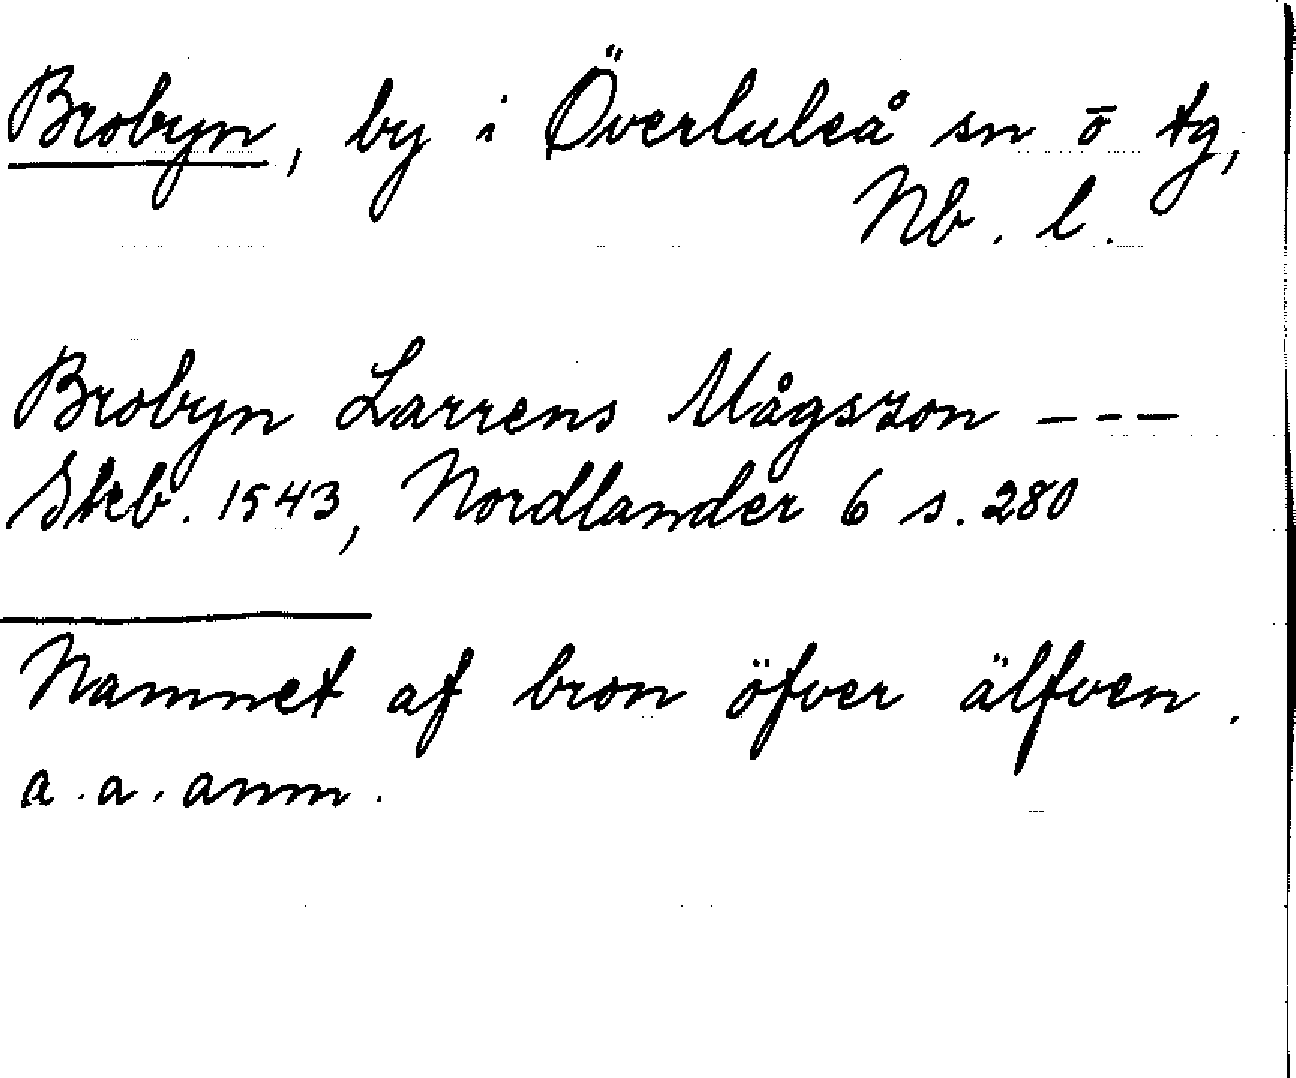 Brobyn, by i Överluleå sn ō tg,
Nb. l.
Brobyn Larrens Mågszon ---
Skb. 1543, Nordlander 6 s. 280
Namnet af bron öfver älfven.
a.a. anm.